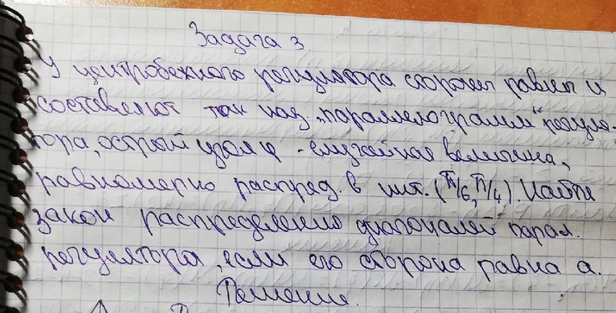 Задача 3
У центробежного регулятора стороны равны и
составляют так наз. „параллелограмм" регуля-
тора, острый угол φ - случайная величина,
равномерно распред. в инт. (π/6, π/4). Найти
закон распределения диагоналей парал.
регулятора, если его сторона равна a.
Решение.